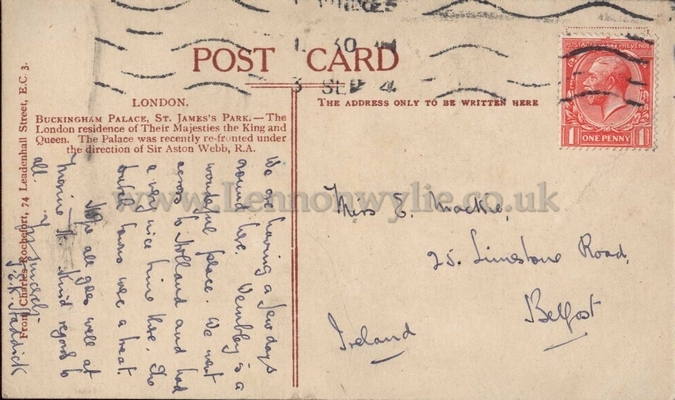 POST CARD
1. 30
3 SEP 24
POSTAGE REVENUE
1 ONE PENNY 1
LONDON.
BUCKINGHAM PALACE, ST. JAMES'S PARK.—The
London residence of Their Majesties the King and
Queen. The Palace was recently re-fronted under
the direction of Sir Aston Webb, R.A.
THE ADDRESS ONLY TO BE WRITTEN HERE
From Charles Rochefort, 74 Leadenhall Street, E.C. 3.
We are having a few days
round here. Wembley is a
wonderful place. We went
across to Holland and had
a very nice time there. The
Dutch towns were a treat
Hope all goes well at
Kind regards to
all. Yrs sincerely
Miss E. Mackie,
25. Limestone Road,
Belfast
Ireland
www.Lennonwylie.co.uk